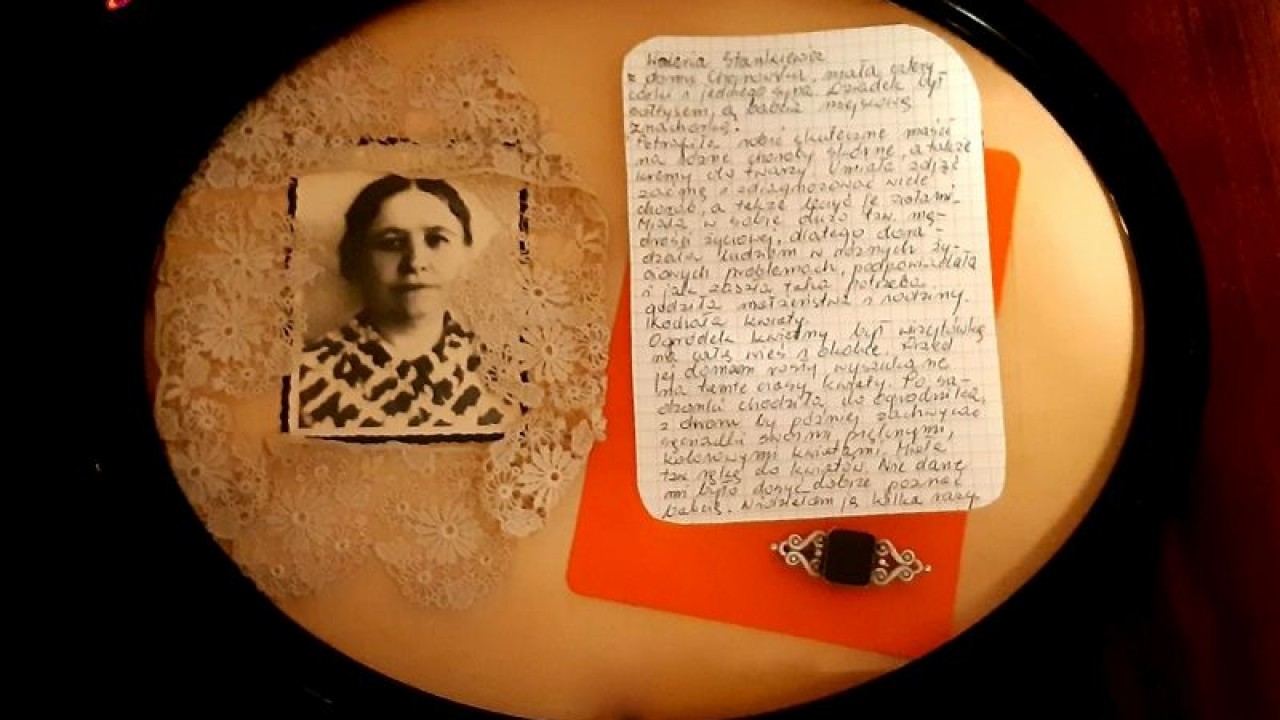 Waleria Stankiewicz
z domu Chojnowska, miała cztery
córki i jednego syna. Dziadek był
sołtysem, a babcia miejscową
znachorką.
Potrafiła robić skuteczne maści
na różne choroby skórne, a także
kremy do twarzy. Umiała zdjąć
zaćmę i zdiagnozować wiele
chorób, a także leczyć je ziołami.
Miała w sobie dużo tzw. mą-
drości życiowej, dlatego dora-
dzała ludziom w różnych ży-
ciowych problemach, podpowiadała
i jak zaszła taka potrzeba
godziła małżeństwa i rodziny.
Kochała kwiaty.
Ogródek kwietny był wizytówką
na całą wieś i okolice. Przed
jej domem rosły wyszukane
na tamte czasy kwiaty. Po sa-
dzonki chodziła do ogrodnika,
z dworu by później zachwycać
sąsiadki swoimi pięknymi,
kolorowymi kwiatami. Miała
tzw. rękę do kwiatów. Nie dane
mi było dosyć dobrze poznać
babcię. Widziałam ją kilka razy